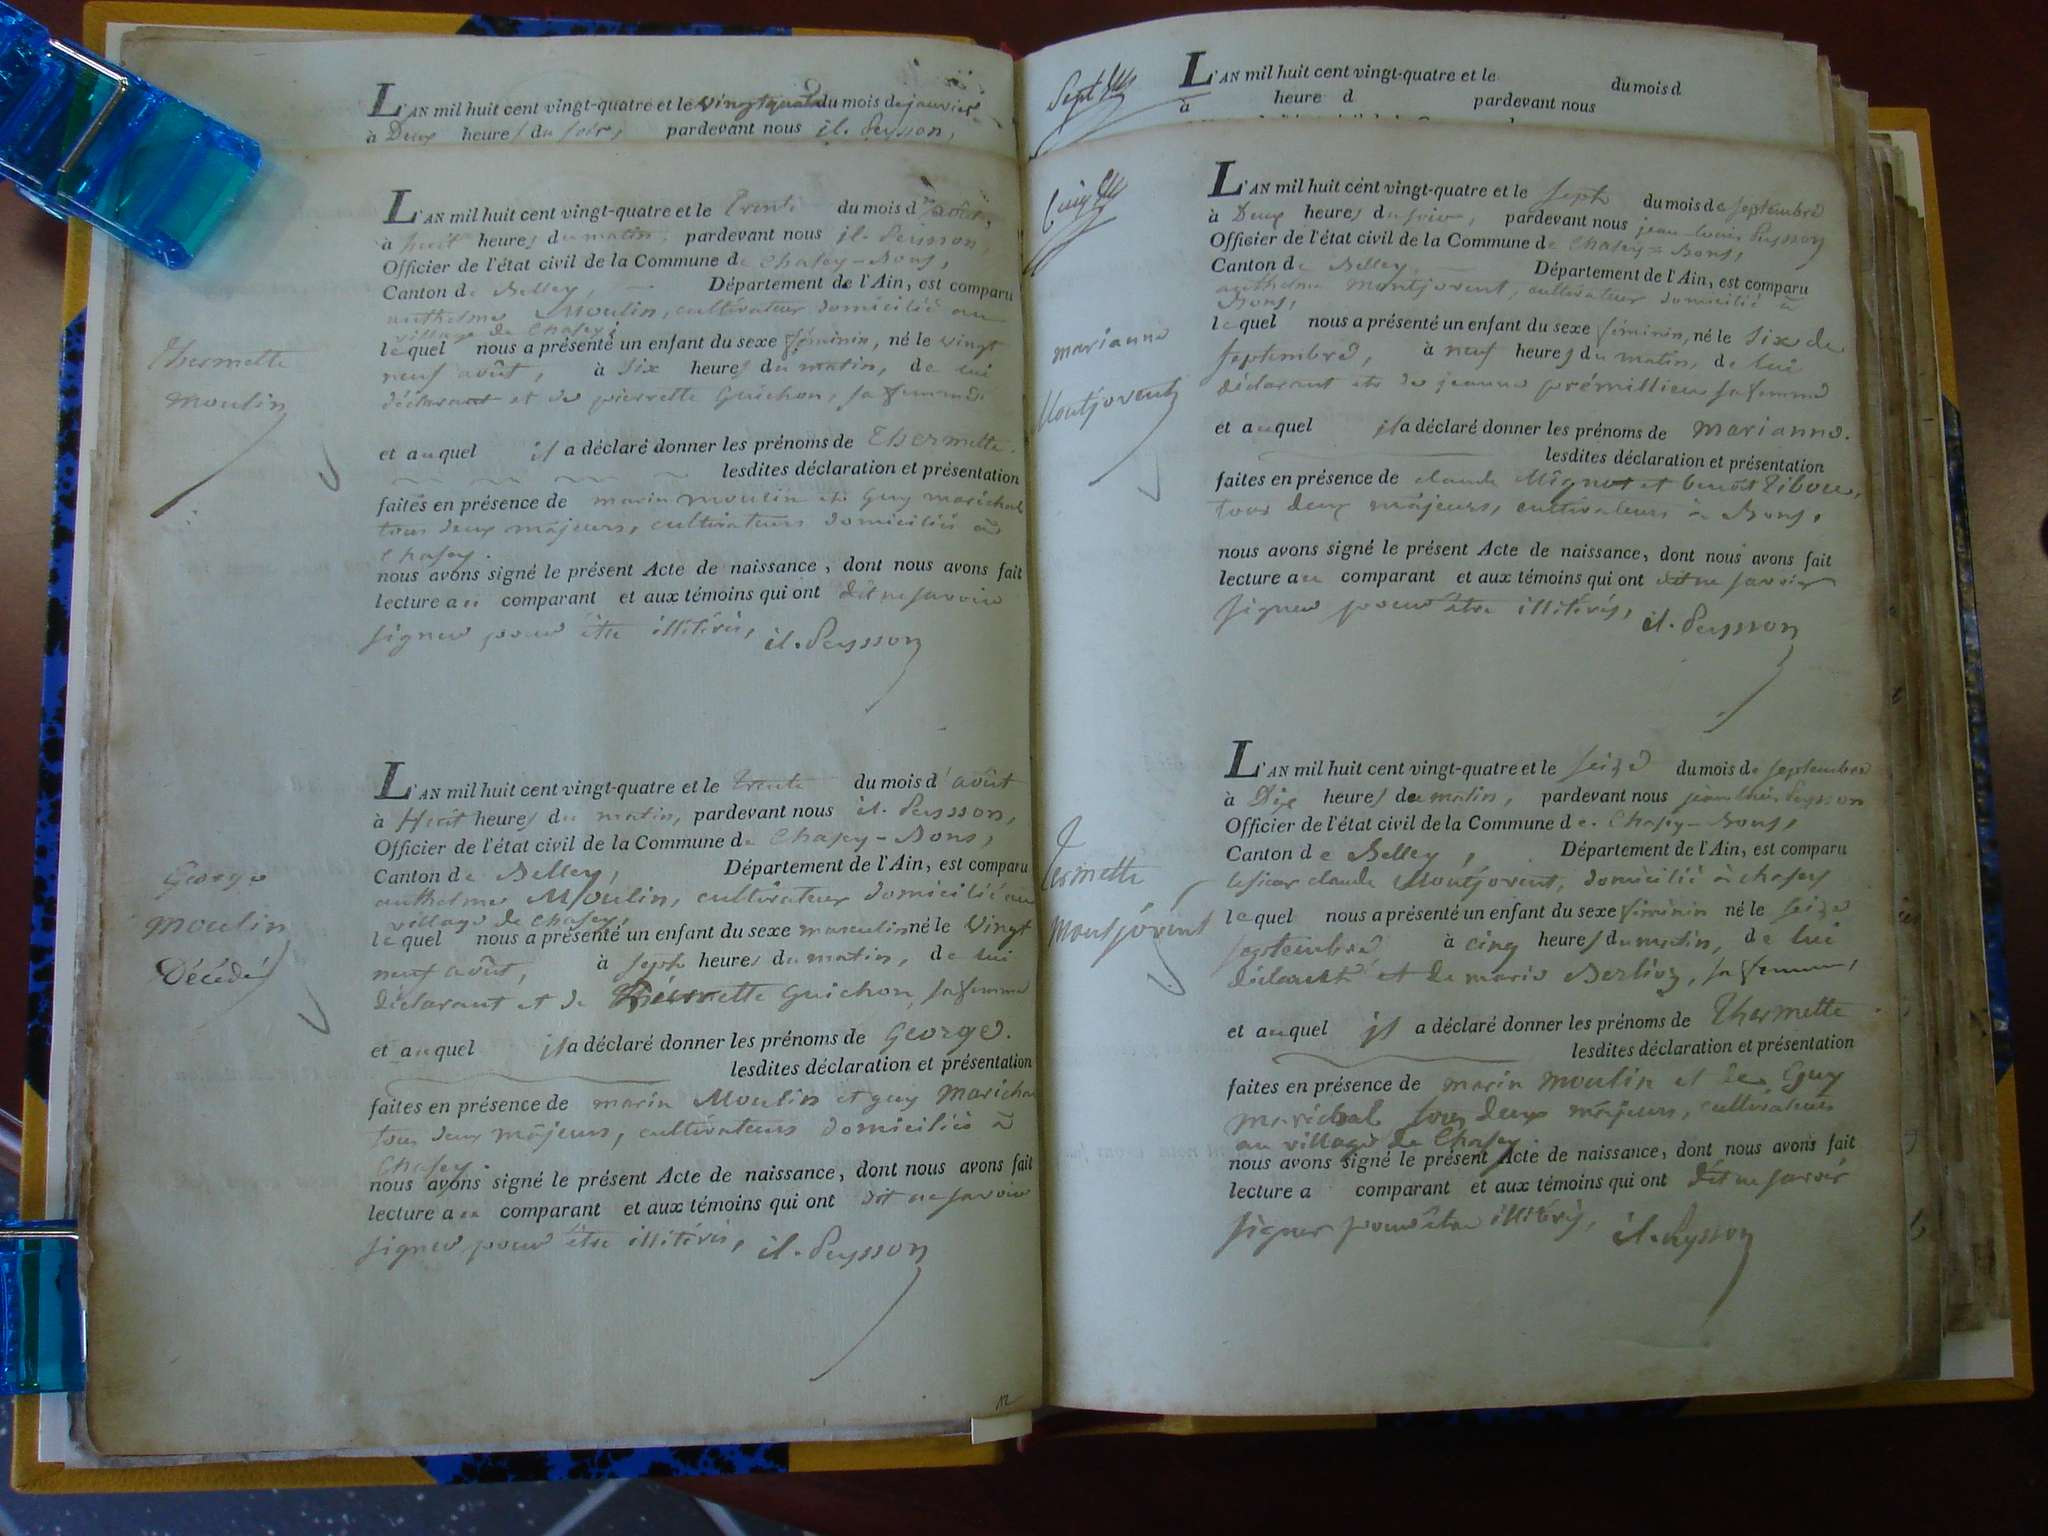 L'AN mil huit cent vingt-quatre et le vingt quatre du mois de janvier
à Deux heures du soir, pardevant nous jl. Peysson,
L'AN mil huit cent vingt-quatre et le trente du mois d'août,
à huit heures du matin, pardevant nous jl. Peisson,
Officier de l'état civil de la Commune de Chasey-Bons,
Canton de Belley, Département de l'Ain, est comparu
anthelme Moulin, cultivateur domicilié au
village de Chasey;
lequel nous a présenté un enfant du sexe féminin, né le vingt
neuf août, à Six heures du matin, de lui
déclarant et de pierrette Guichon, sa femme
et auquel il a déclaré donner les prénoms de Thermette.
lesdites déclaration et présentation
faites en présence de marin moulin et Guy marichal
tous deux majeurs, cultivateurs domiciliés à
Chasey.
nous avons signé le présent Acte de naissance, dont nous avons fait
lecture au comparant et aux témoins qui ont dit ne savoir
signer pour être illitérés, jl. Peysson
Thermette
moulin
L'AN mil huit cent vingt-quatre et le trente du mois d'août
à Huit heures du matin, pardevant nous jl. Peysson,
Officier de l'état civil de la Commune de Chasey-Bons,
Canton de Belley, Département de l'Ain, est comparu
anthelme Moulin, cultivateur domicilié au
village de Chasey,
lequel nous a présenté un enfant du sexe masculin né le Vingt
neuf août, à sept heures du matin, de lui
déclarant et de Pierrette Guichon, sa femme
et auquel il a déclaré donner les prénoms de George.
lesdites déclaration et présentation
faites en présence de marin Moulin et guy Marichal
tous deux majeurs, cultivateurs domiciliés à
Chasey.
nous avons signé le présent Acte de naissance, dont nous avons fait
lecture au comparant et aux témoins qui ont dit ne savoir
signer pour être illitérés, jl. Peysson
George
moulin
Décédé
12
L'AN mil huit cent vingt-quatre et le du mois d
à heure d pardevant nous
L'AN mil huit cent vingt-quatre et le sept du mois de septembre
à Deux heures du soir, pardevant nous jean louis Peysson
Officier de l'état civil de la Commune de Chasey-Bons,
Canton de Belley, Département de l'Ain, est comparu
anthelme montjovent, cultivateur domicilié à
Bons,
lequel nous a présenté un enfant du sexe féminin, né le Six de
septembre, à neuf heures du matin, de lui
déclarant et de jeanne prémillieu sa femme
et auquel il a déclaré donner les prénoms de marianne.
lesdites déclaration et présentation
faites en présence de claude Mignot et benoit Tibou,
tous deux majeurs, cultivateurs à Bons,
nous avons signé le présent Acte de naissance, dont nous avons fait
lecture au comparant et aux témoins qui ont dit ne savoir
signer pour être illitérés, jl. Peysson
marianne
Montjovent
L'AN mil huit cent vingt-quatre et le seize du mois de septembre
à Dix heures du matin, pardevant nous jean louis Peysson
Officier de l'état civil de la Commune de Chasey-Bons,
Canton de Belley, Département de l'Ain, est comparu
le sieur claude Montjovent, domicilié à chasey
lequel nous a présenté un enfant du sexe féminin né le seize
septembre, à cinq heures du matin, de lui
déclarant et de marie Berlioz, sa femme,
et auquel il a déclaré donner les prénoms de Thermette.
lesdites déclaration et présentation
faites en présence de marin moulin et de Guy
marichal tous deux majeurs, cultivateurs
au village de Chasey
nous avons signé le présent Acte de naissance, dont nous avons fait
lecture a comparant et aux témoins qui ont dit ne savoir
signer pour être illitérés, jl. Peysson
Termette
Montjovent